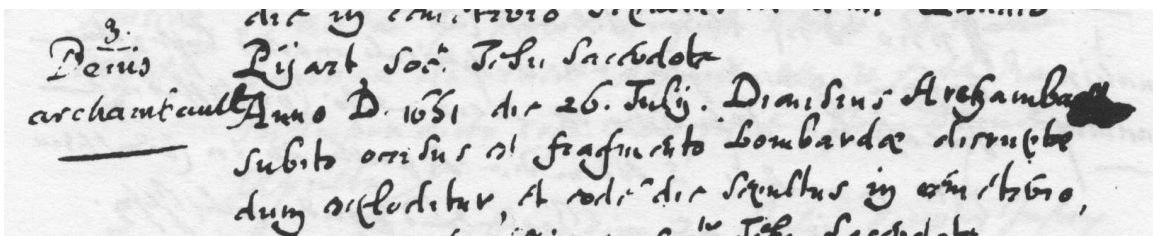 die in cemeterio
3.
Denis
archambault
Pijart Soc. Jesu Sacerdote
Anno D. 1651 die 26. Julij. Dionisius Archamba
subito occisus est fragmento bombardæ disruptæ
dum exploditur, et eode die sepultus in cœmeterio,
Jesu Sacerdote